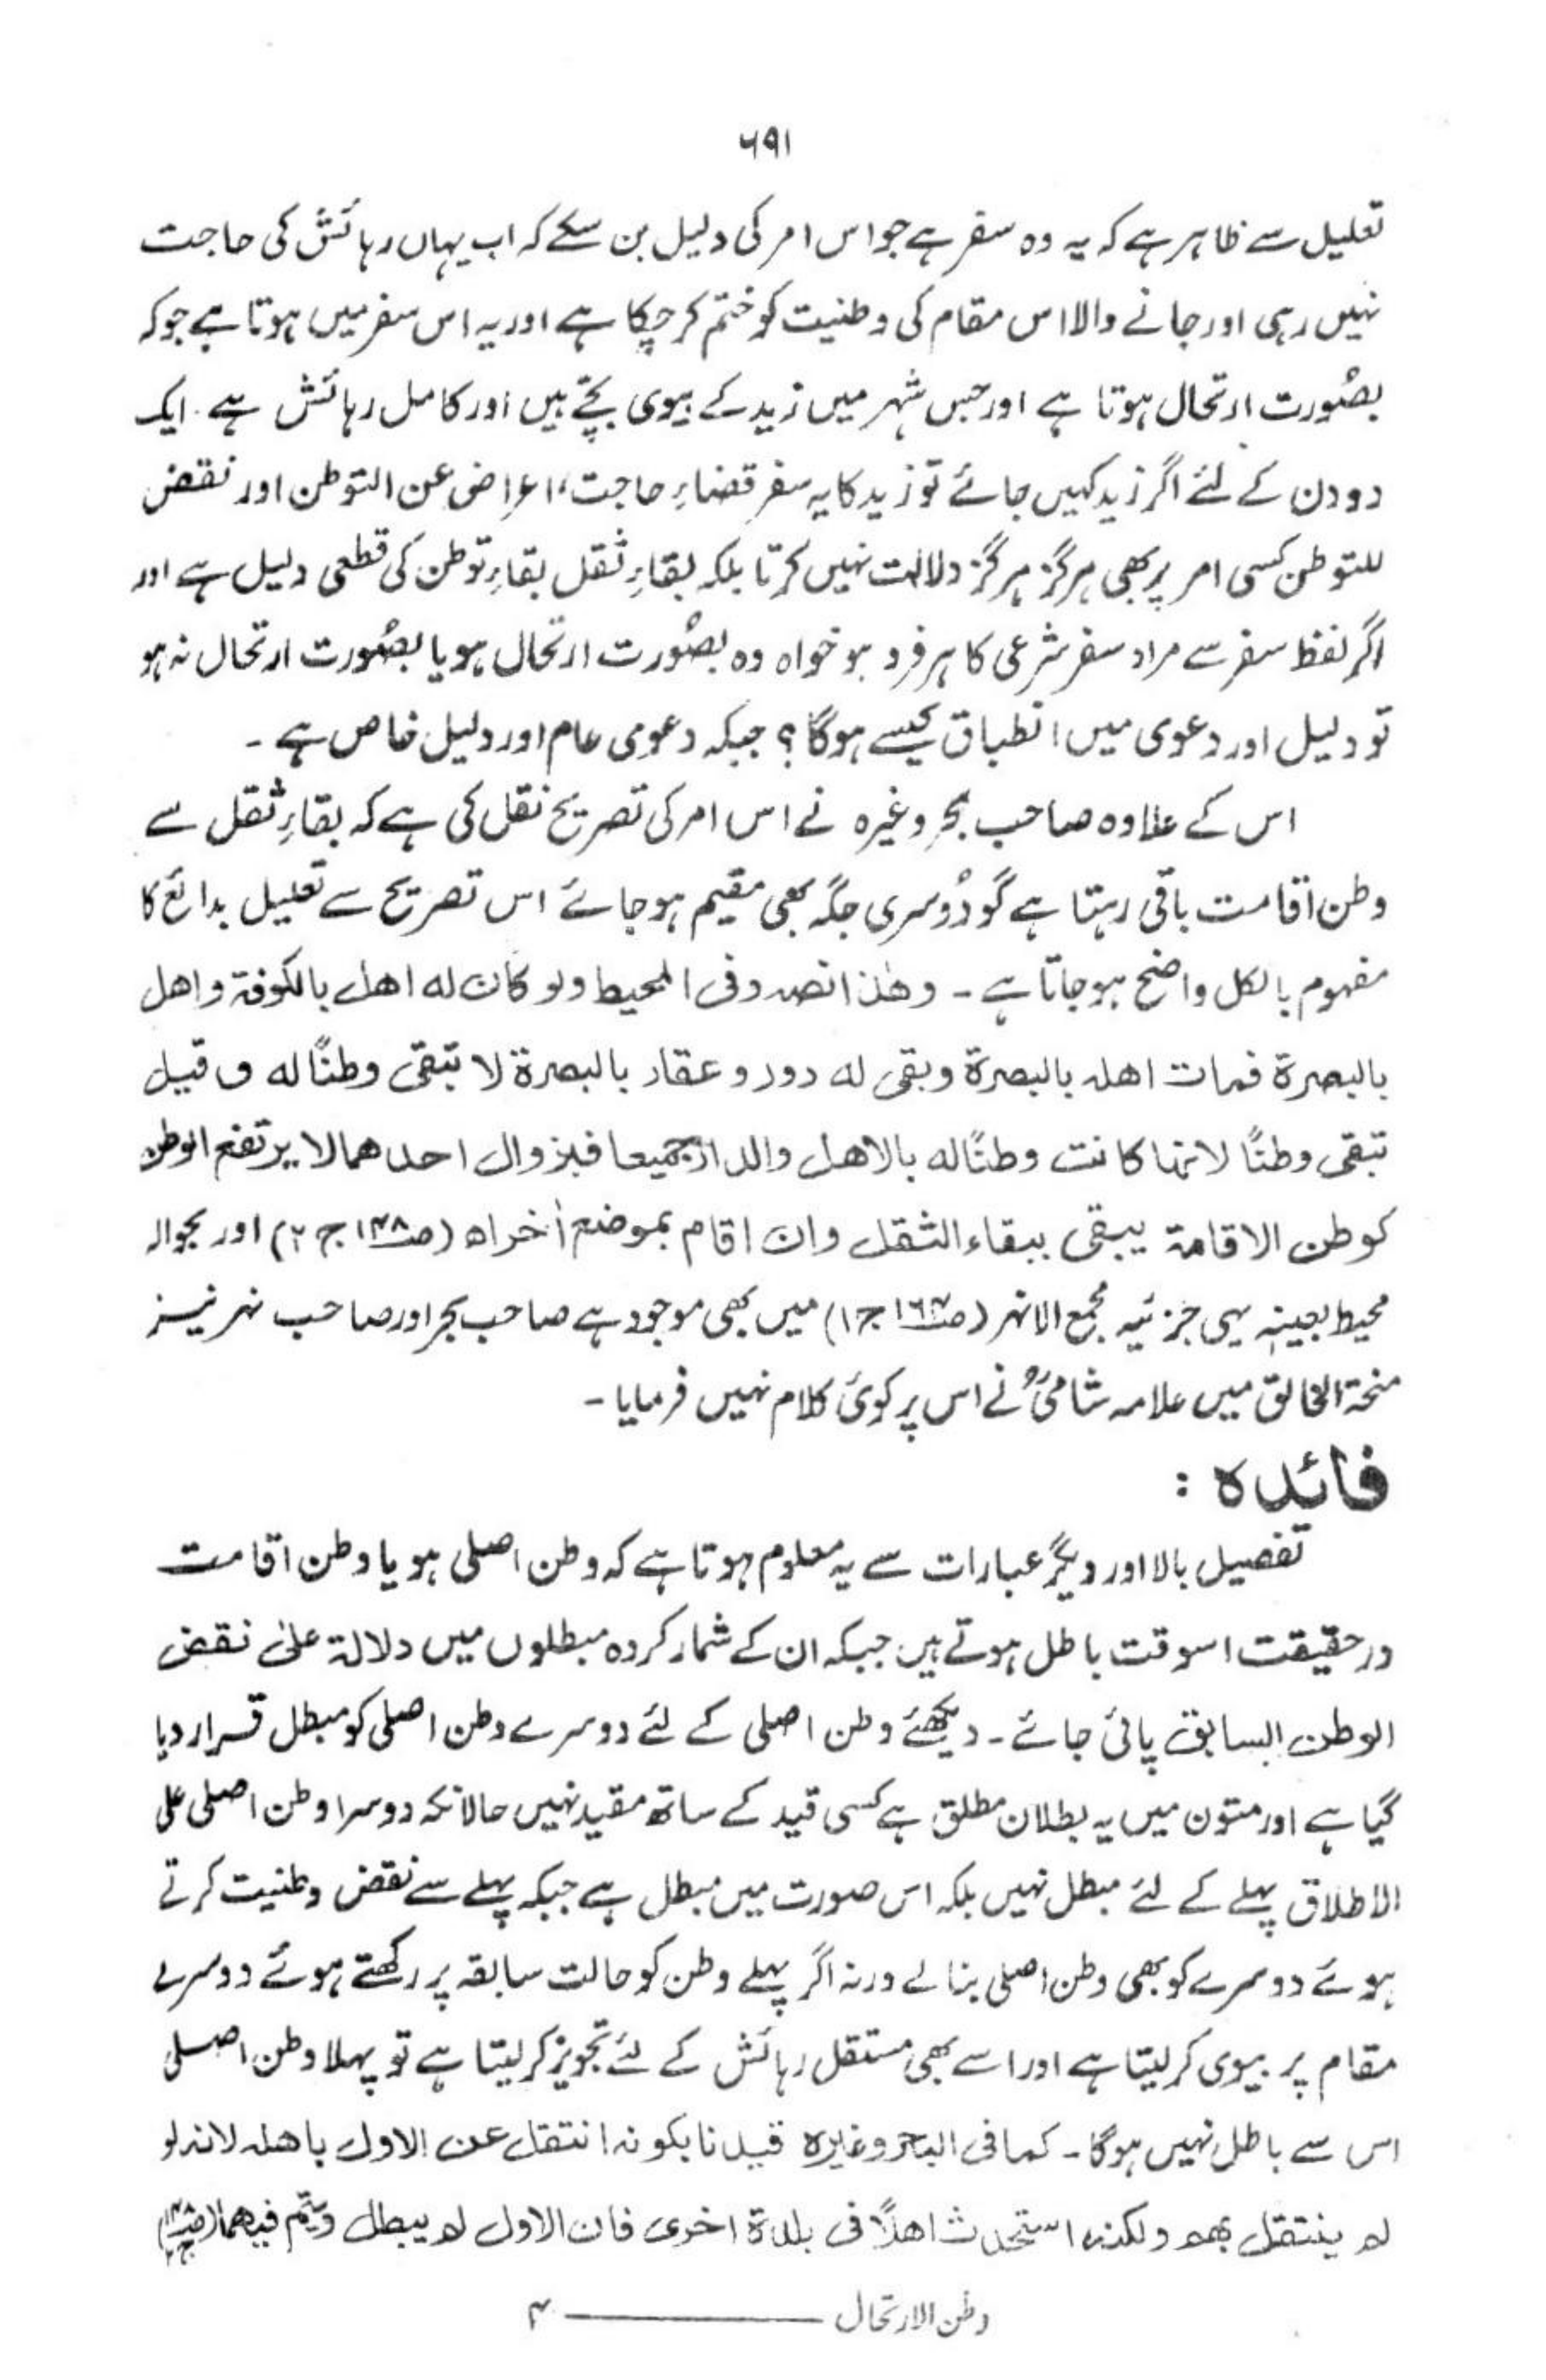 ۶۹۱
تعلیل سے ظاہر ہے کہ یہ وہ سفر ہے جو اس امر کی دلیل بن سکے کہ اب یہاں رہائش کی حاجت
نہیں رہی اور جانے والا اس مقام کی وطنیت کو ختم کر چکا ہے اور یہ اس سفر میں ہوتا ہے جو کہ
بصُورت ارتحال ہوتا ہے اور جس شہر میں زید کے بیوی بچّے ہیں اور کامل رہائش ہے۔ ایک
دو دن کے لئے اگر زید کہیں جائے تو زید کا یہ سفر قضاءِ حاجت، اعراض عن التوطن اور نقض
للتوطن کسی امر پر بھی ہرگز ہرگز دلالت نہیں کرتا بلکہ بقاءِ ثقل بقاءِ توطن کی قطعی دلیل ہے اور
اگر لفظ سفر سے مراد سفر شرعی کا ہر فرد ہو خواہ وہ بصُورت ارتحال ہو یا بصُورت ارتحال نہ ہو
تو دلیل اور دعوی میں انطباق کیسے ہوگا؟ جبکہ دعوی عام اور دلیل خاص ہے۔
اس کے علاوہ صاحب بحر وغیرہ نے اس امر کی تصریح نقل کی ہے کہ بقاءِ ثقل سے
وطن اقامت باقی رہتا ہے گو دُوسری جگہ بھی مقیم ہو جائے اس تصریح سے تعلیل بدائع کا
مفہوم بالکل واضح ہو جاتا ہے۔ وھٰذا نصہ وفی المحیط ولو کان لہ اھل بالکوفۃ واھل
بالبصرۃ فمات اھلہ بالبصرۃ وبقی لہ دور وعقار بالبصرۃ لا تبقی وطنًا لہ وقیل
تبقی وطنًا لانھا کانت وطنًا لہ بالاھل والدار جمیعا فبزوال احدھما لا یرتفع الوطن
کوطن الاقامۃ یبقی ببقاء الثقل وان اقام بموضع اٰخراہ (ص۱۴۸ ج ۲) اور بحوالہ
محیط بعینہٖ یہی جزئیہ مجمع الانہر (ص۱۶۴ ج۱) میں بھی موجود ہے صاحب بحر اور صاحب نہر نیز
منحۃ الخالق میں علامہ شامیؒ نے اس پر کوئی کلام نہیں فرمایا۔
فائدہ :
تفصیل بالا اور دیگر عبارات سے یہ معلوم ہوتا ہے کہ وطن اصلی ہو یا وطن اقامت
درحقیقت اسوقت باطل ہوتے ہیں جبکہ ان کے شمار کردہ مبطلوں میں دلالۃ علیٰ نقض
الوطن السابق پائی جائے۔ دیکھئے وطن اصلی کے لئے دوسرے وطن اصلی کو مبطل قرار دیا
گیا ہے اور متون میں یہ بطلان مطلق ہے کسی قید کے ساتھ مقید نہیں حالانکہ دوسرا وطن اصلی علی
الاطلاق پہلے کے لئے مبطل نہیں بلکہ اس صورت میں مبطل ہے جبکہ پہلے سے نقض وطنیت کرتے
ہوئے دوسرے کو بھی وطن اصلی بنالے ورنہ اگر پہلے وطن کو حالت سابقہ پر رکھتے ہوئے دوسرے
مقام پر بیوی کرلیتا ہے اور اسے بھی مستقل رہائش کے لئے تجویز کرلیتا ہے تو پہلا وطن اصلی
اس سے باطل نہیں ہوگا۔ کما فی البحر وغیرہ قیدنا بکونہ انتقل عن الاول باھلہ لانہ لو
لم ینتقل بھم ولکنہ استحدث اھلاً فی بلدۃ اخری فان الاول لم یبطل ویتم فیھما (ص۱۴۸ ج۲)
وطن الارتحال ــــــــــــ ۴